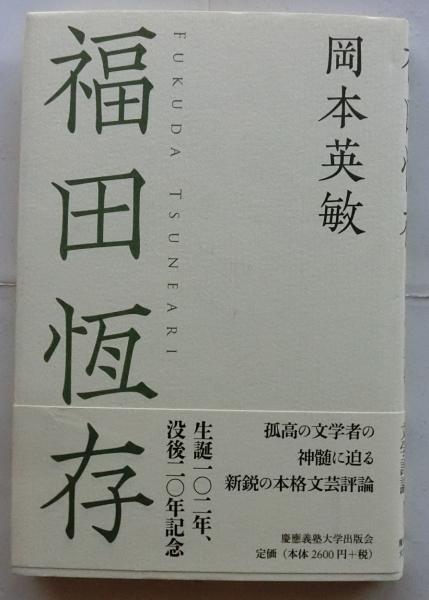 岡本英敏
福田恆存
FUKUDA TSUNEARI
孤高の文学者の
神髄に迫る
新鋭の本格文芸評論
生誕一〇二年、
没後二〇年記念
慶應義塾大学出版会
定価（本体2600円+税）